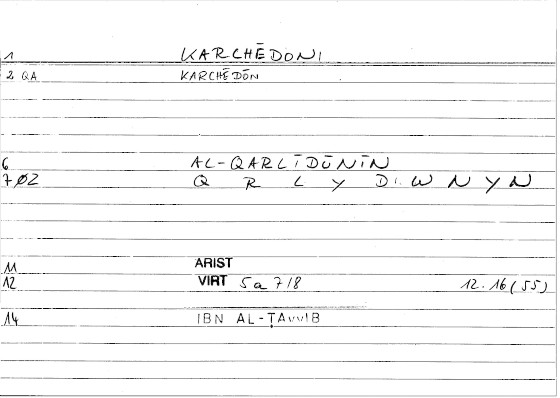 1 KARCHĒDONI
2 QA KARCHĒDŌN
6 AL-QARLĪDŪNĪN
7 ØZ Q R L Y D. W N Y N
11 ARIST
12 VIRT 5a 7/8 12.16 (55)
14 IBN AL-ṬAYYIB